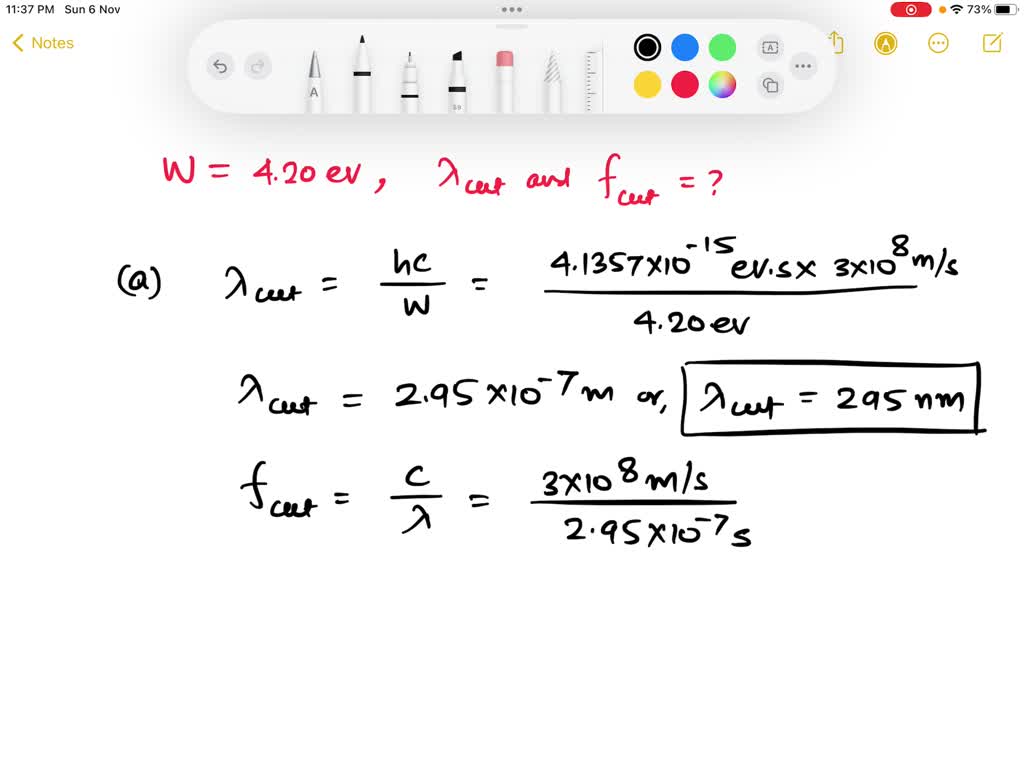 11:37 PM Sun 6 Nov 73%
Notes
A 59 A
W = 4.20 ev, λcut and fcut = ?
(a) λcut = hc/W = 4.1357×10^-15 ev.s × 3×10^8 m/s / 4.20 ev
λcut = 2.95×10^-7 m or, λcut = 295 nm
fcut = c/λ = 3×10^8 m/s / 2.95×10^-7 s